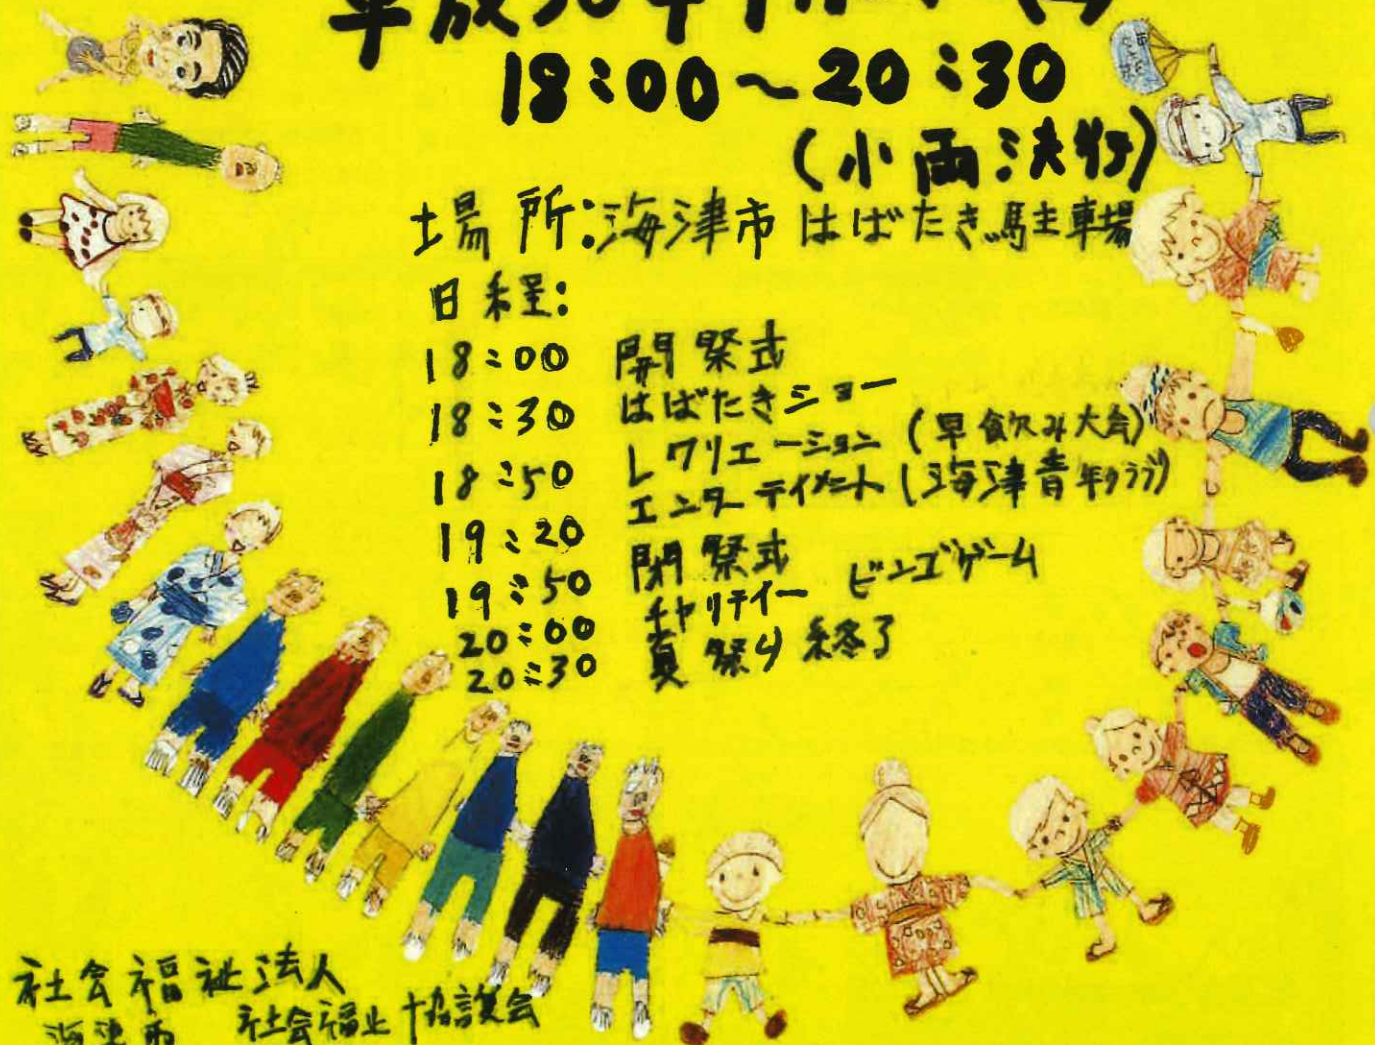 平成30年
18:00～20:30
(小雨決行)
場所:海津市はばたき駐車場
日程:
18:00 開祭式
18:30 はばたきショー
18:50 レクリエーション (早飲み大会)
19:20 エンターテイメント (海津青年クラブ)
19:50 閉祭式
20:00 チャリティー ビンゴゲーム
20:30 夏祭り終了
社会福祉法人
海津市 社会福祉協議会